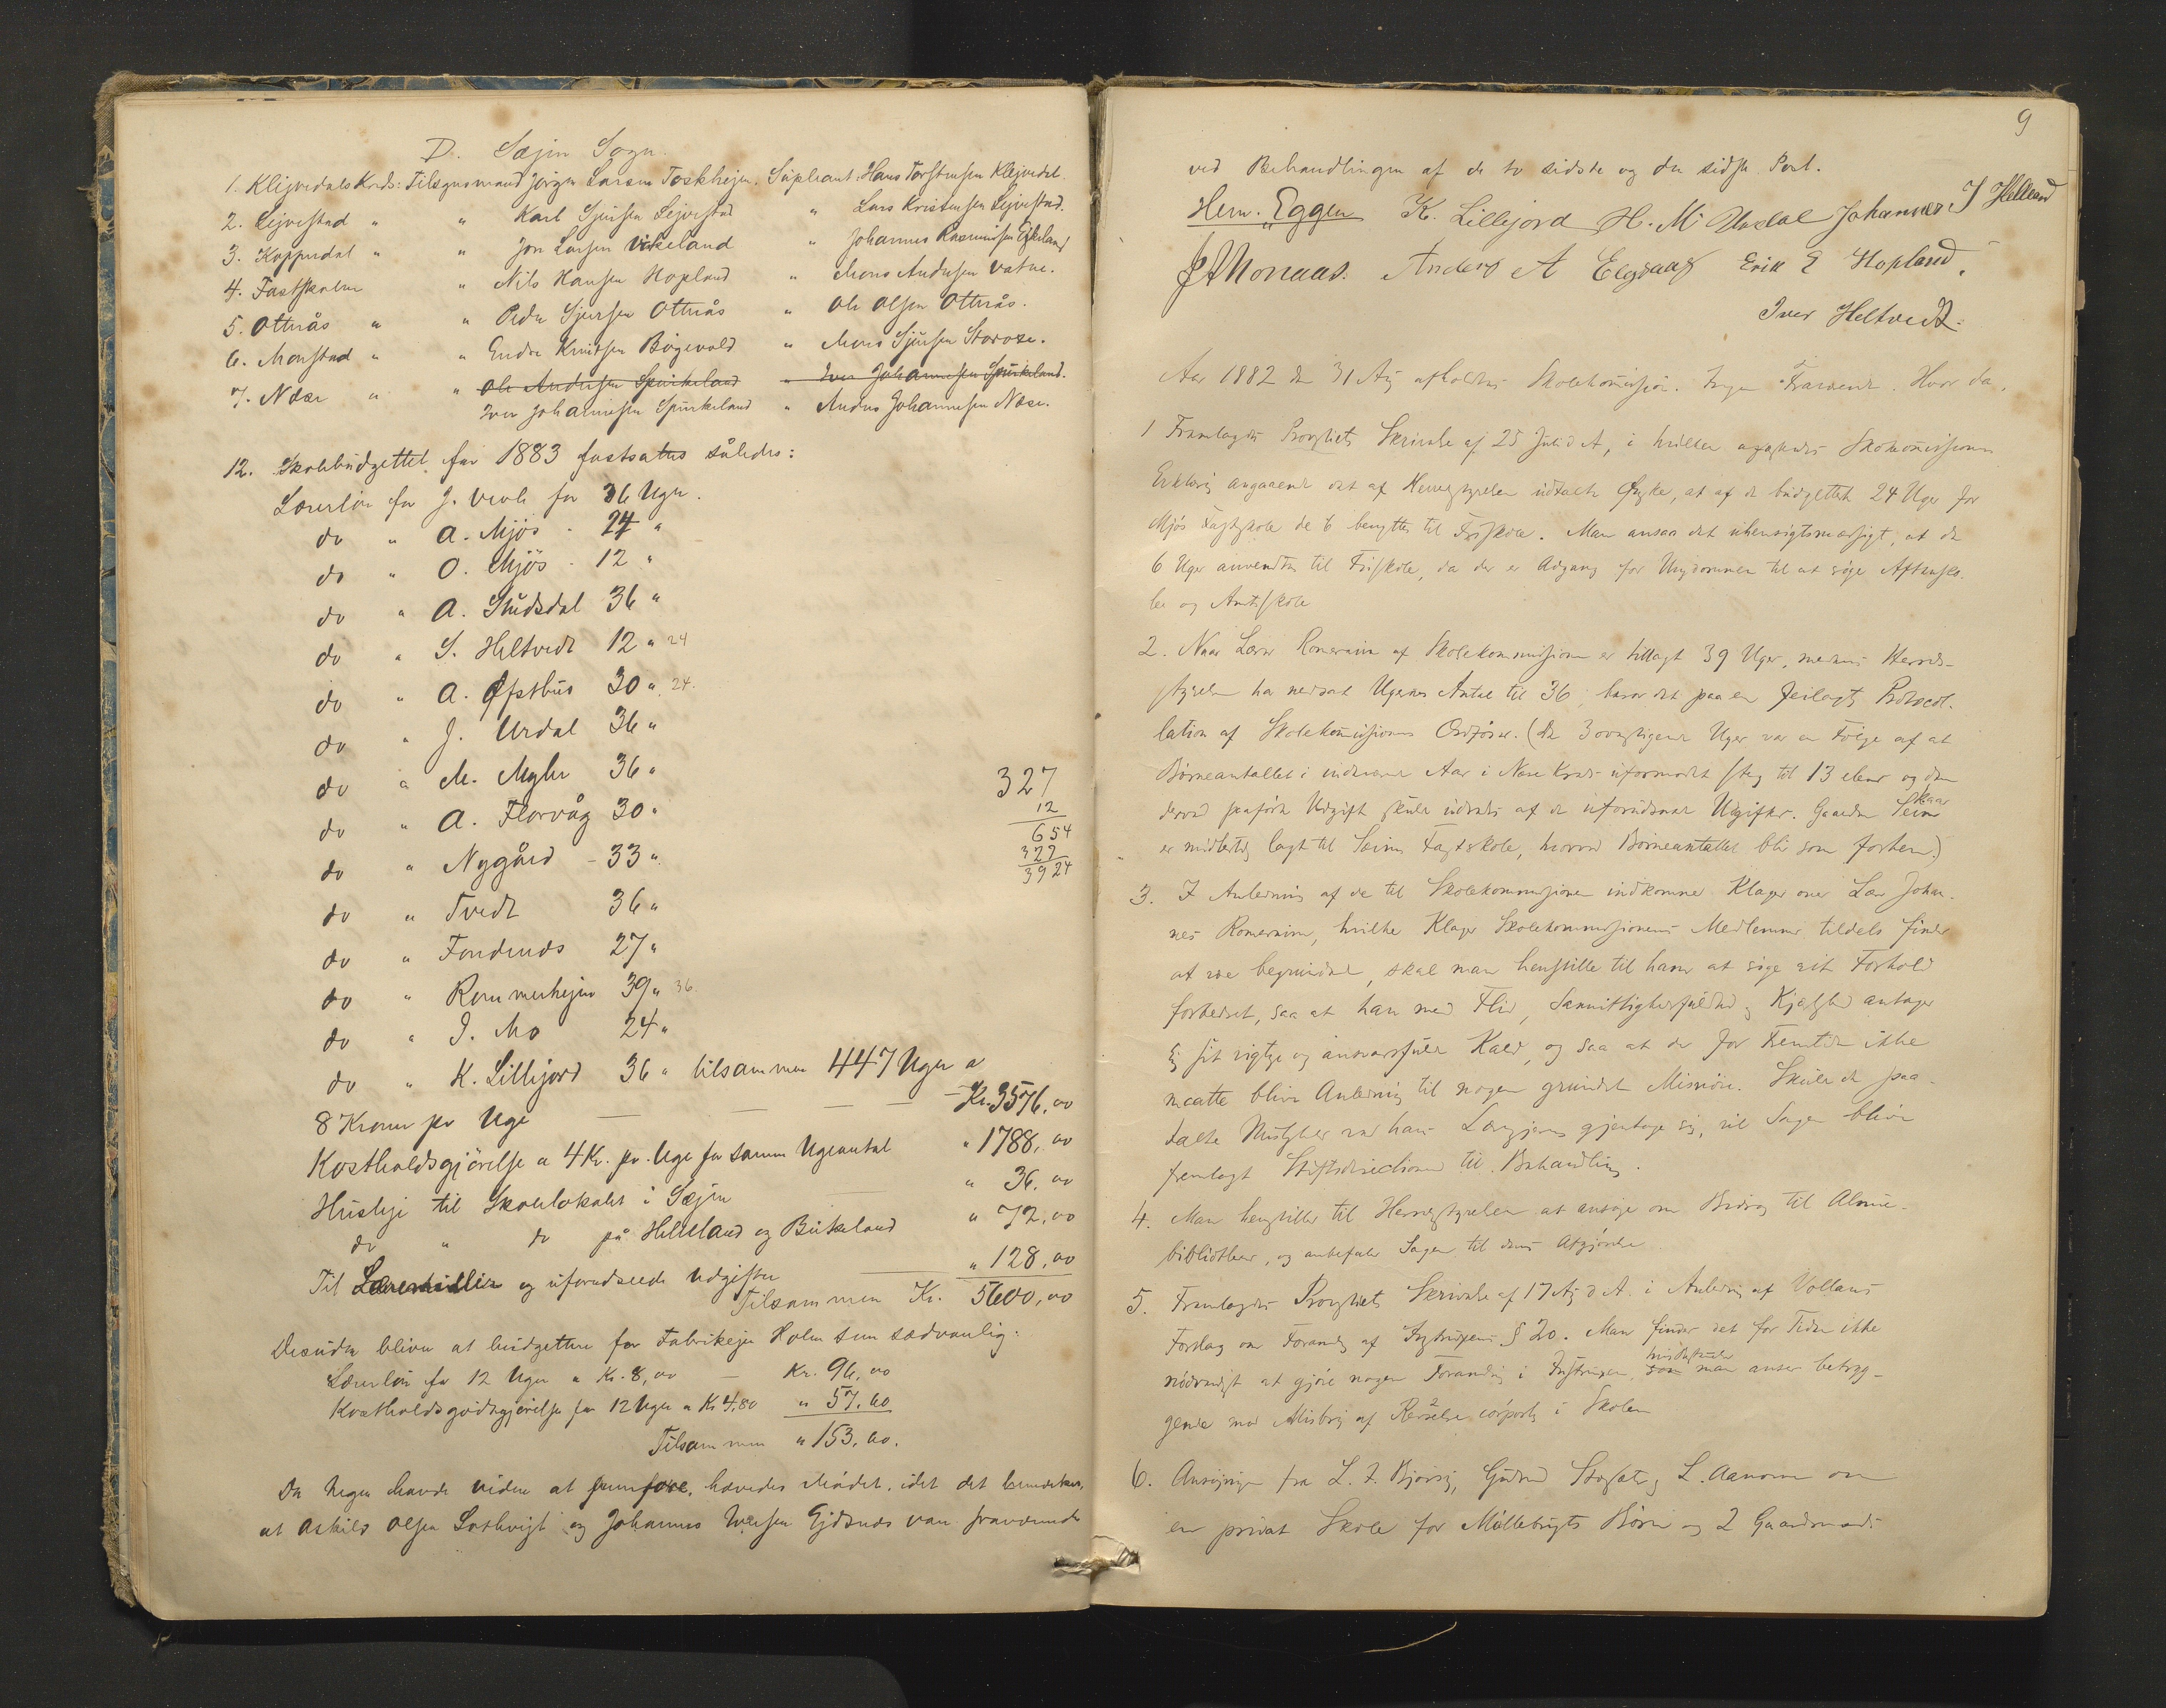 D. Sæjm Sogn.
1. Klejvedals Kreds: Tilsynsmand Jørgen Larsen Toskhejm. Supleant: Hans Torstensen Klejvedal.
2. Lejvestad " " Karl Sjursen Lejvestad " Lars Kristensen Lejvestad.
3. Koppedal " " Jon Larsen Virkeland " Johannes Rasmussen Eikeland
4. Fastskolen " Nils Hansen Hopland " Mons Andersen Vatne.
5. Otterås " " Peder Sjursen Otterås " Ole Olsen Otterås.
6. Monstad " " Endre Knutsen Bøgevold " Mons Sjursen
7. Næse " " Ole Andersen Spurkeland " Iver Johannesen Spurkeland.
Iver Johannesen Spurkeland " Anders Johannesen Næse.
12. Skolebudgettet for 1883 fastsattes således:
Lærerløn for J. for 36 Uger.
do " A. Mjös - 24 "
do " O. Mjös - 12 "
do " A. Studsdal 36 "
do " S. Heltvedt 12 " 24
do " A. Øfstbus 30 " 24.
do " J. Urdal 36 "
do " M. Myhr 36 "
do " A. Florvåg 30 "
do " Nygård - 33 "
do " Tvedt 36 "
do " Fondenes 27 "
do " Rommerhejm 39 " 36.
do " I. Mo 24 "
do " K. Lillejord 36 " tilsammen 447 Uger a
8 Kroner pr Uge — — — — Kr. 3576,00
Kostholdsgjörelse a 4 Kr. pr. Uge for samme Ugeantal " 1788,00
Husleje til Skolelokalet i Sæjm " 36,00
do " do på Helleland og Birkeland " 72,00
Til Læremidler og uforudseede Udgifter " 128,00
Tilsammen Kr. 5600,00
327
12
654
327
3924
Desuden bliver at budgettere for Fabrikejer Holm som sædvanlig:
Lærerløn for 12 Uger a Kr. 8,00 — Kr. 96,00
Kostholdsgodtgjørelse for 12 Uger a Kr 4,80 " 57,60
Tilsammen " 153,60.
Da Ingen havde videre at fremføre, hævedes Mödet, idet det bemærkes,
at Askild Olsen og Johannes Iversen Ejdsnes var fraværende
9
ved Behandlingen af de to sidste og den sidste Post.
Herm. Eggen K. Lillejord H. M. Urdal Johannes I Helland
Anders A Elsaas Erik E Hopland.
Iver Heltvedt.
Aar 1882 den 31 Aug afholdtes Skolekommission. Ingen Fraværende. Hvor da.
1 Fremlagdes Provstiets Skrivelse af 25 Juli d A, i hvilken Skolekommissionens
Erklæring angaaende det af Herredstyrelsen udtalte Ønske, at af de budgetterte 24 Uger for
Mjös Fastskole de 6 benyttes til Friskole. Man ansaa det uhensigtsmæssigt, at de
6 Uger anvendtes til Friskole, da der er Adgang for Ungdommen til at söge Aftensko-
le og Amtsskole
2. Naar Lærer Romereim af Skolekommissionen er tillagt 39 Uger, medens Herreds-
styrelsen har nedsat Ugernes Antal til 36, beror det paa en feilagtig Protocol-
lation af Skolekommissionens Ordförer. (De 3 overstigende Uger var en Fölge af at
Børneantallet i indeværende Aar i Næse Kreds uformodet steg til 13 elever og den
derved paaførte Udgift skulde udredes af de uforudseede Udgifter. Gaarden Seim
er midlertidig lagt til Seims Fastskole, hvorved Børneantallet bli som forhen.)
3. I Anledning af de til Skolekommissionen indkomne Klager over Lærer Johan-
nes Romereim, hvilke Klager Skolekommissionens Medlemmer tildels finder
at være begrundede, skal man henstille til ham at söge sit Forhold
forbedret, saa at han med Flid, Samvittighedsfuldhed og Kjærlighed antager
sig sit vigtige og ansvarsfulde Kald, og saa at der for Fremtiden ikke
maatte blive Anledning til nogen grundet Misnöie. Skulde de paa-
talte Misligheder ved hans Lærergjerning gjentage sig, vil Sagen blive
fremlagt Stiftsdirectionen til Behandling.
4. Man henstiller til Herredstyrelsen at ansöge om Bidrag til Almue-
bibliothek, og anbefaler Sagen til dens Afgjörelse
5. Fremlagdes Provstiets Skrivelse af 17 Aug d A. i Anledning af Vollans
Forslag om Forandring af Instruxens § 20. Man finder det for Tiden ikke
nödvendigt at gjöre nogen Forandring i Instruxen, man anser betryg-
gende mod Misbrug af Revselse i Skolen
6. Ansögninger fra L. J. Bjørsvig, Gudmund og L. Aanonsen om
en privat Skole for Möllebrugets Börn og 2 Gaardmænds